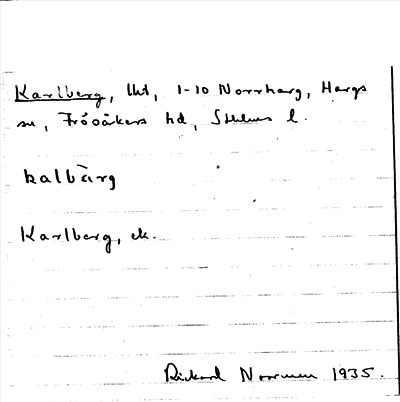 Karlberg, lht, 1-10 Norrharg, Hargs
sn, Frösåkers hd, Sthlms l.
kalbärg
Karlberg, ek.
Rickard Norrmen 1935.